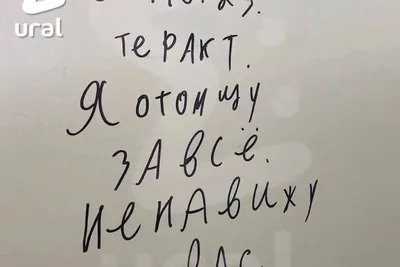 ural
теракт.
Я отомщу
за всё.
Ненавижу
вас
ural